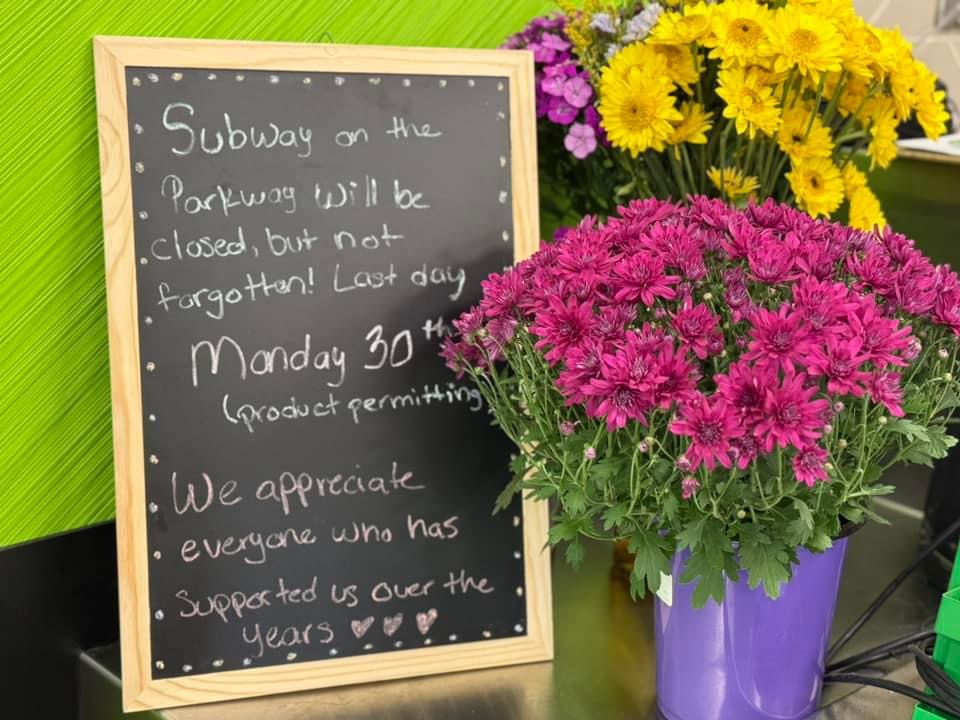 Subway on the
Parkway will be
closed, but not
forgotten! Last day
Monday 30th
(product permitting)
We appreciate
everyone who has
supported us over the
years ♡ ♡ ♡